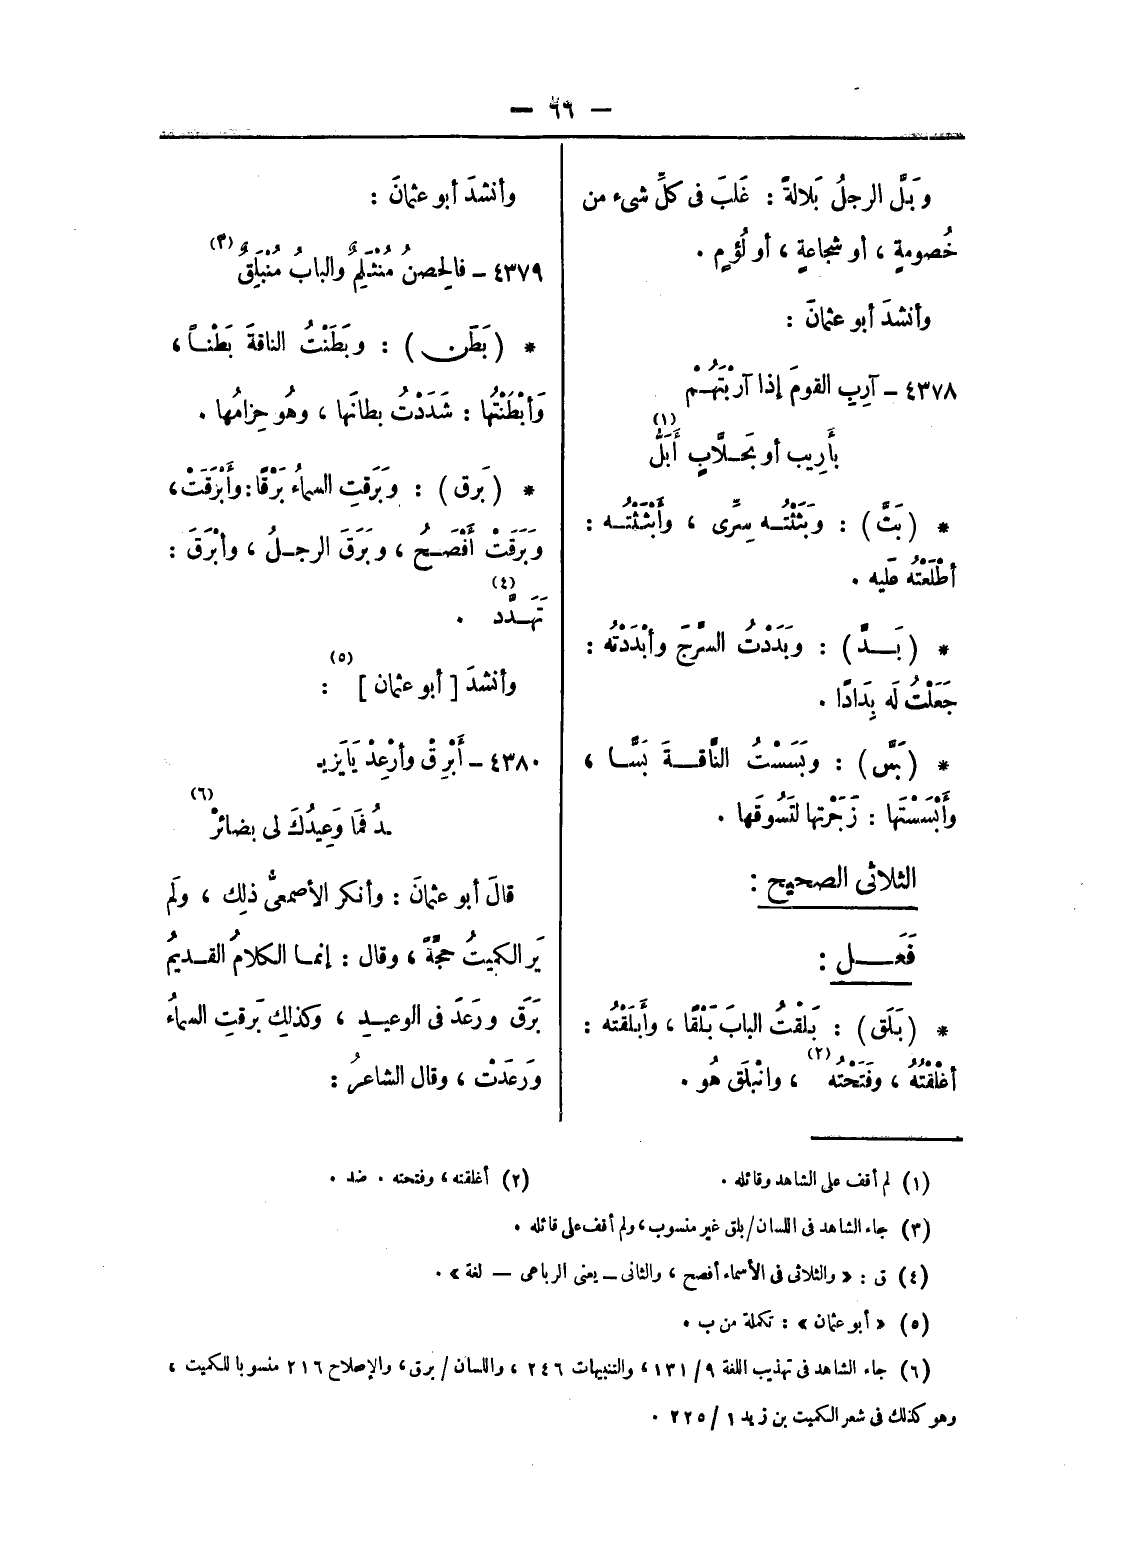 — ٦٦ —
وَبَلَّ الرجلُ بَلالةً : غَلبَ فى كلِّ شىء من
خُصومةٍ ، أو شجاعةٍ ، أو لُؤمٍ .
وأنشدَ أبو عثمانَ :
٤٣٧٨ – آرِبِ القومَ إذا آرَبْتَهُمْ
بأَرِيب أو بَحلَّابٍ أَبَلّ (١)
* ( بَثَّ ) : وبَثَثْتُه سِرِّى ، وأَبْثَثْتُه :
أطْلَعْتُه عَليه .
* ( بَدَّ ) : وبَدَدْتُ السَّرْجَ وأبْدَدْتُه :
جَعَلْتُ لَه بِدَادًا .
* ( بَسَّ ) : وبَسَسْتُ النَّاقةَ بَسًّا ،
وأَبْسَسْتَها : زَجَرْتها لتَسُوقَها .
الثلاثى الصحيح :
فَعَل :
* ( بَلَق ) : بَلَقْتُ البابَ بَلْقًا ، وأَبلَقْتُه :
أغلْقتُهُ ، وفَتَحْتُه (٢) ، وانْبلَق هُو .
وأنشدَ أبو عثمانَ :
٤٣٧٩ – فالحِصنُ مُنْثَلِمٌ والبابُ مُنْبَلِقٌ (٣)
* ( بَطَن ) : وبَطَنْتُ الناقةَ بَطْنًا ،
وَأبْطَنْتُها : شَدَدْتُ بطانَها ، وهُو حِزامُها .
* ( بَرق ) : وبَرَقتِ السماءُ بَرْقًا : وأَبْرَقَتْ ،
وبَرَقَتْ أفْصَحُ ، وبَرَقَ الرجلُ ، وأبْرَقَ :
تَهَدَّد (٤) .
وأنشدَ [ أبو عثمان ] (٥) :
٤٣٨٠ – أَبْرِقْ وأرْعِدْ يَايَزِيـ
ـدُ فَمَا وَعِيدُكَ لى بضائرْ (٦)
قالَ أبو عثمانَ : وأنكر الأصمعىُّ ذلِك ، ولَم
يَر الكميتُ حجَّةً ، وقال : إنما الكلامُ القديمُ
بَرَق ورَعَدَ فى الوعيدِ ، وكذلكِ بَرقتِ السماءُ
ورَعدَتْ ، وقال الشاعرُ :
(١) لم أقف على الشاهد وقائله .
(٢) أغلقته ، وفتحته . ضد .
(٣) جاء الشاهد فى اللسان/بلق غير منسوب ، ولم أقف على قائله .
(٤) ق : « والثلاثى فى الأسماء أفصح ، والثانى – يعنى الرباعى – لغة » .
(٥) « أبو عثمان » : تكملة من ب .
(٦) جاء الشاهد فى تهذيب اللغة ٩ / ١٣١ ، والتنبيهات ٢٤٦ ، واللسان / برق ، والإصلاح ٢١٦ منسوبا للكميت ،
وهو كذلك فى شعر الكميت بن زيد ١ / ٢٢٥ .